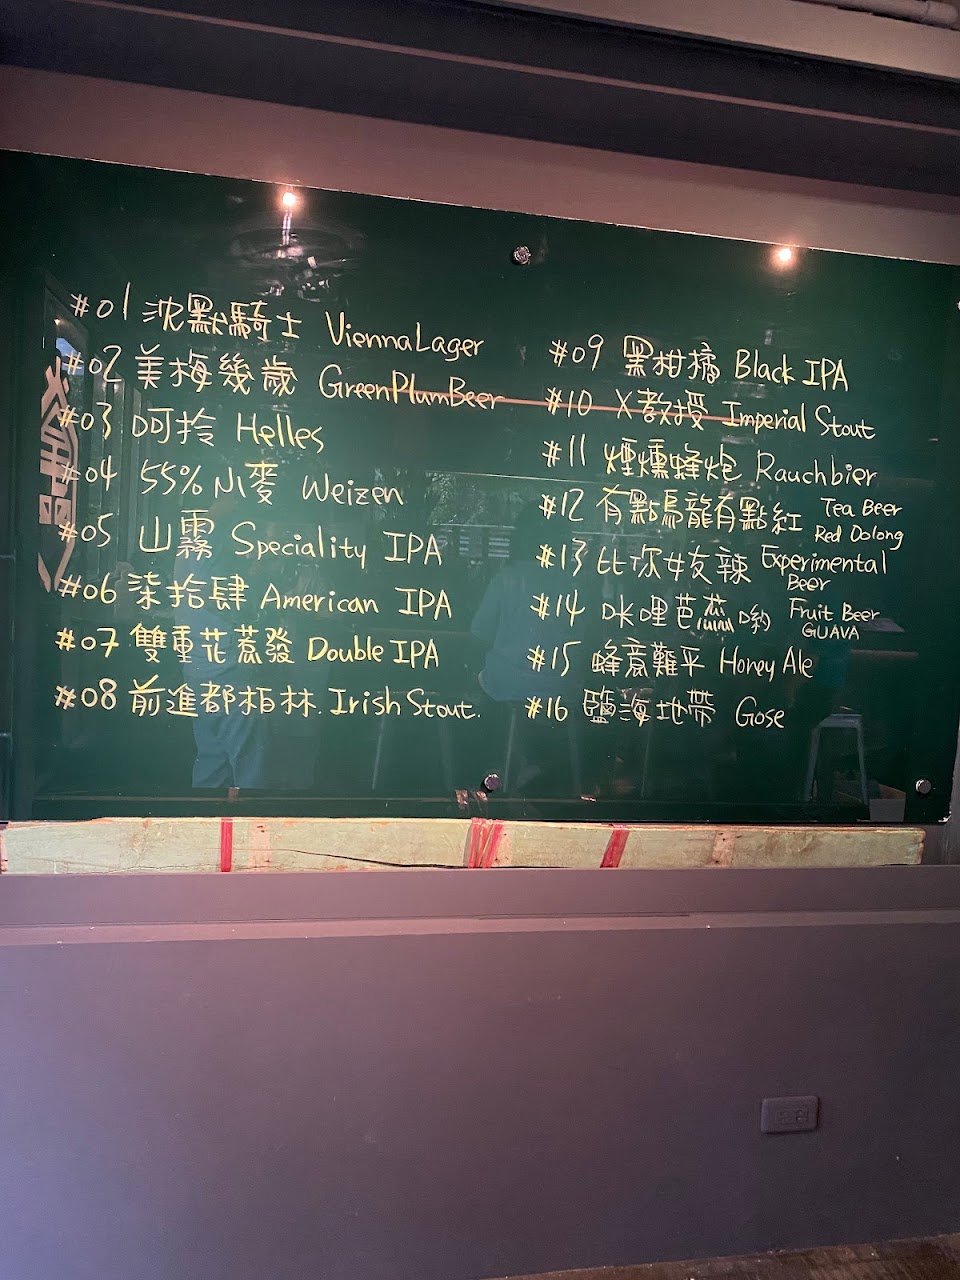 #01 沈默騎士 Vienna Lager
#02 美梅幾歲 Green Plum Beer
#03 呵拎 Helles
#04 55%小麥 Weizen
#05 山霧 Speciality IPA
#06 柒拾肆 American IPA
#07 雙重花蒸發 Double IPA
#08 前進都柏林. Irish Stout.
#09 黑柑橘 Black IPA
#10 X教授 Imperial Stout
#11 煙燻蜂炮 Rauchbier
#12 有點烏龍有點紅 Tea Beer
Red Oolong
#13 比你女友辣 Experimental
Beer
#14 咪哩芭蕊啲 Fruit Beer
GUAVA
#15 蜂意難平 Honey Ale
#16 鹽海地帶 Gose